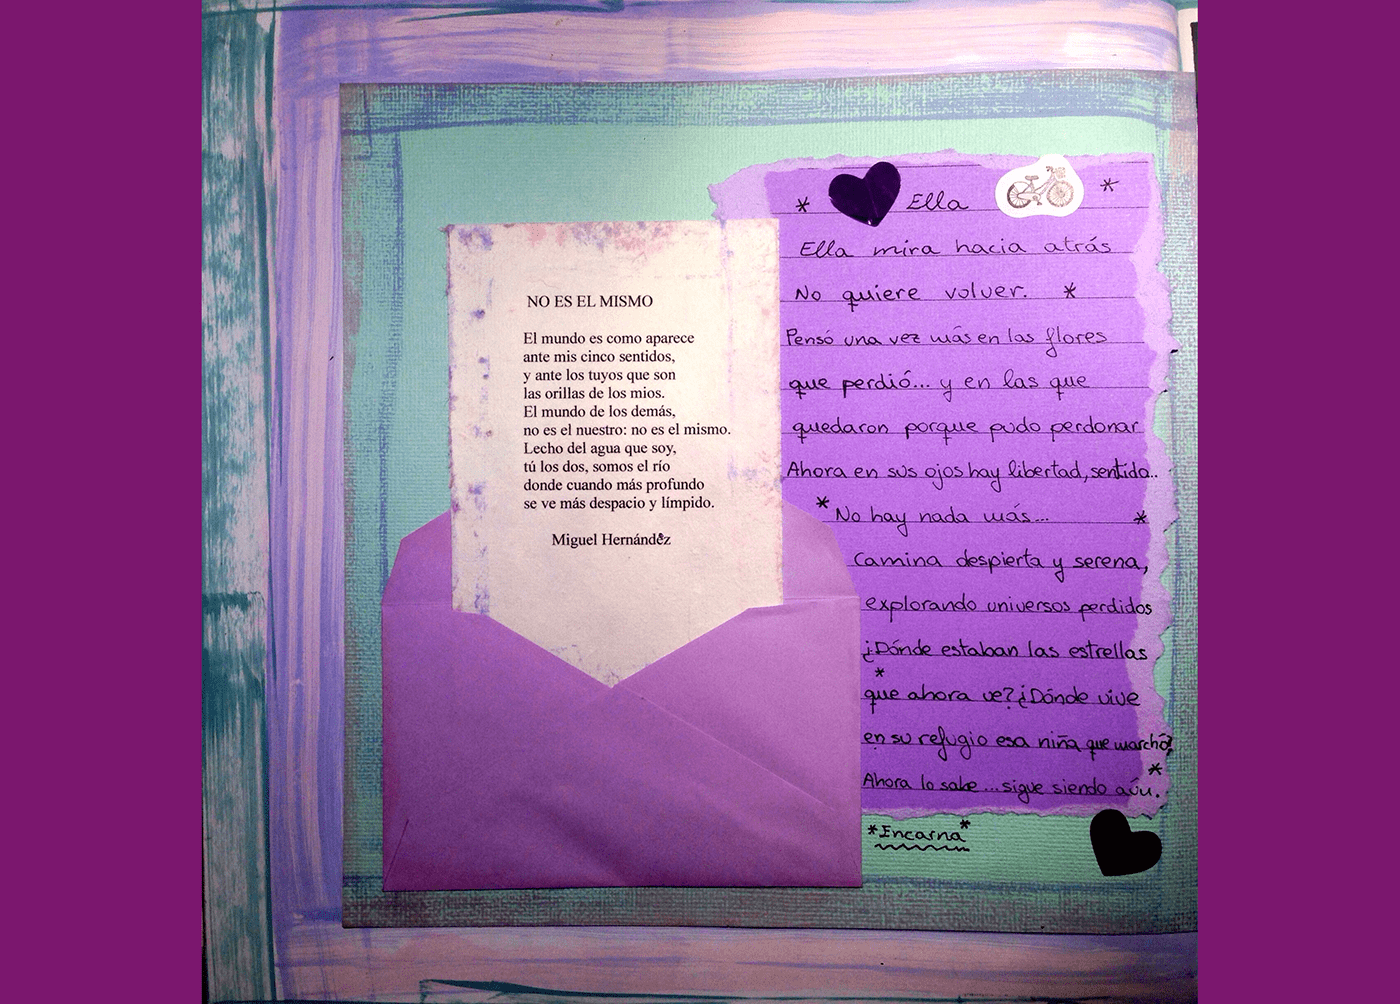 NO ES EL MISMO
El mundo es como aparece
ante mis cinco sentidos,
y ante los tuyos que son
las orillas de los mios.
El mundo de los demás,
no es el nuestro: no es el mismo.
Lecho del agua que soy,
tú los dos, somos el río
donde cuando más profundo
se ve más despacio y límpido.
Miguel Hernández
* Ella *
Ella mira hacia atrás
No quiere volver. *
Pensó una vez más en las flores
que perdió... y en las que
quedaron porque pudo perdonar
Ahora en sus ojos hay libertad, sentido...
* No hay nada más... *
Camina despierta y serena,
explorando universos perdidos
¿Dónde estaban las estrellas
* que ahora ve? ¿Dónde vive
en su refugio esa niña que marchó?
Ahora lo sabe ... sigue siendo aún. *
*Encarna*